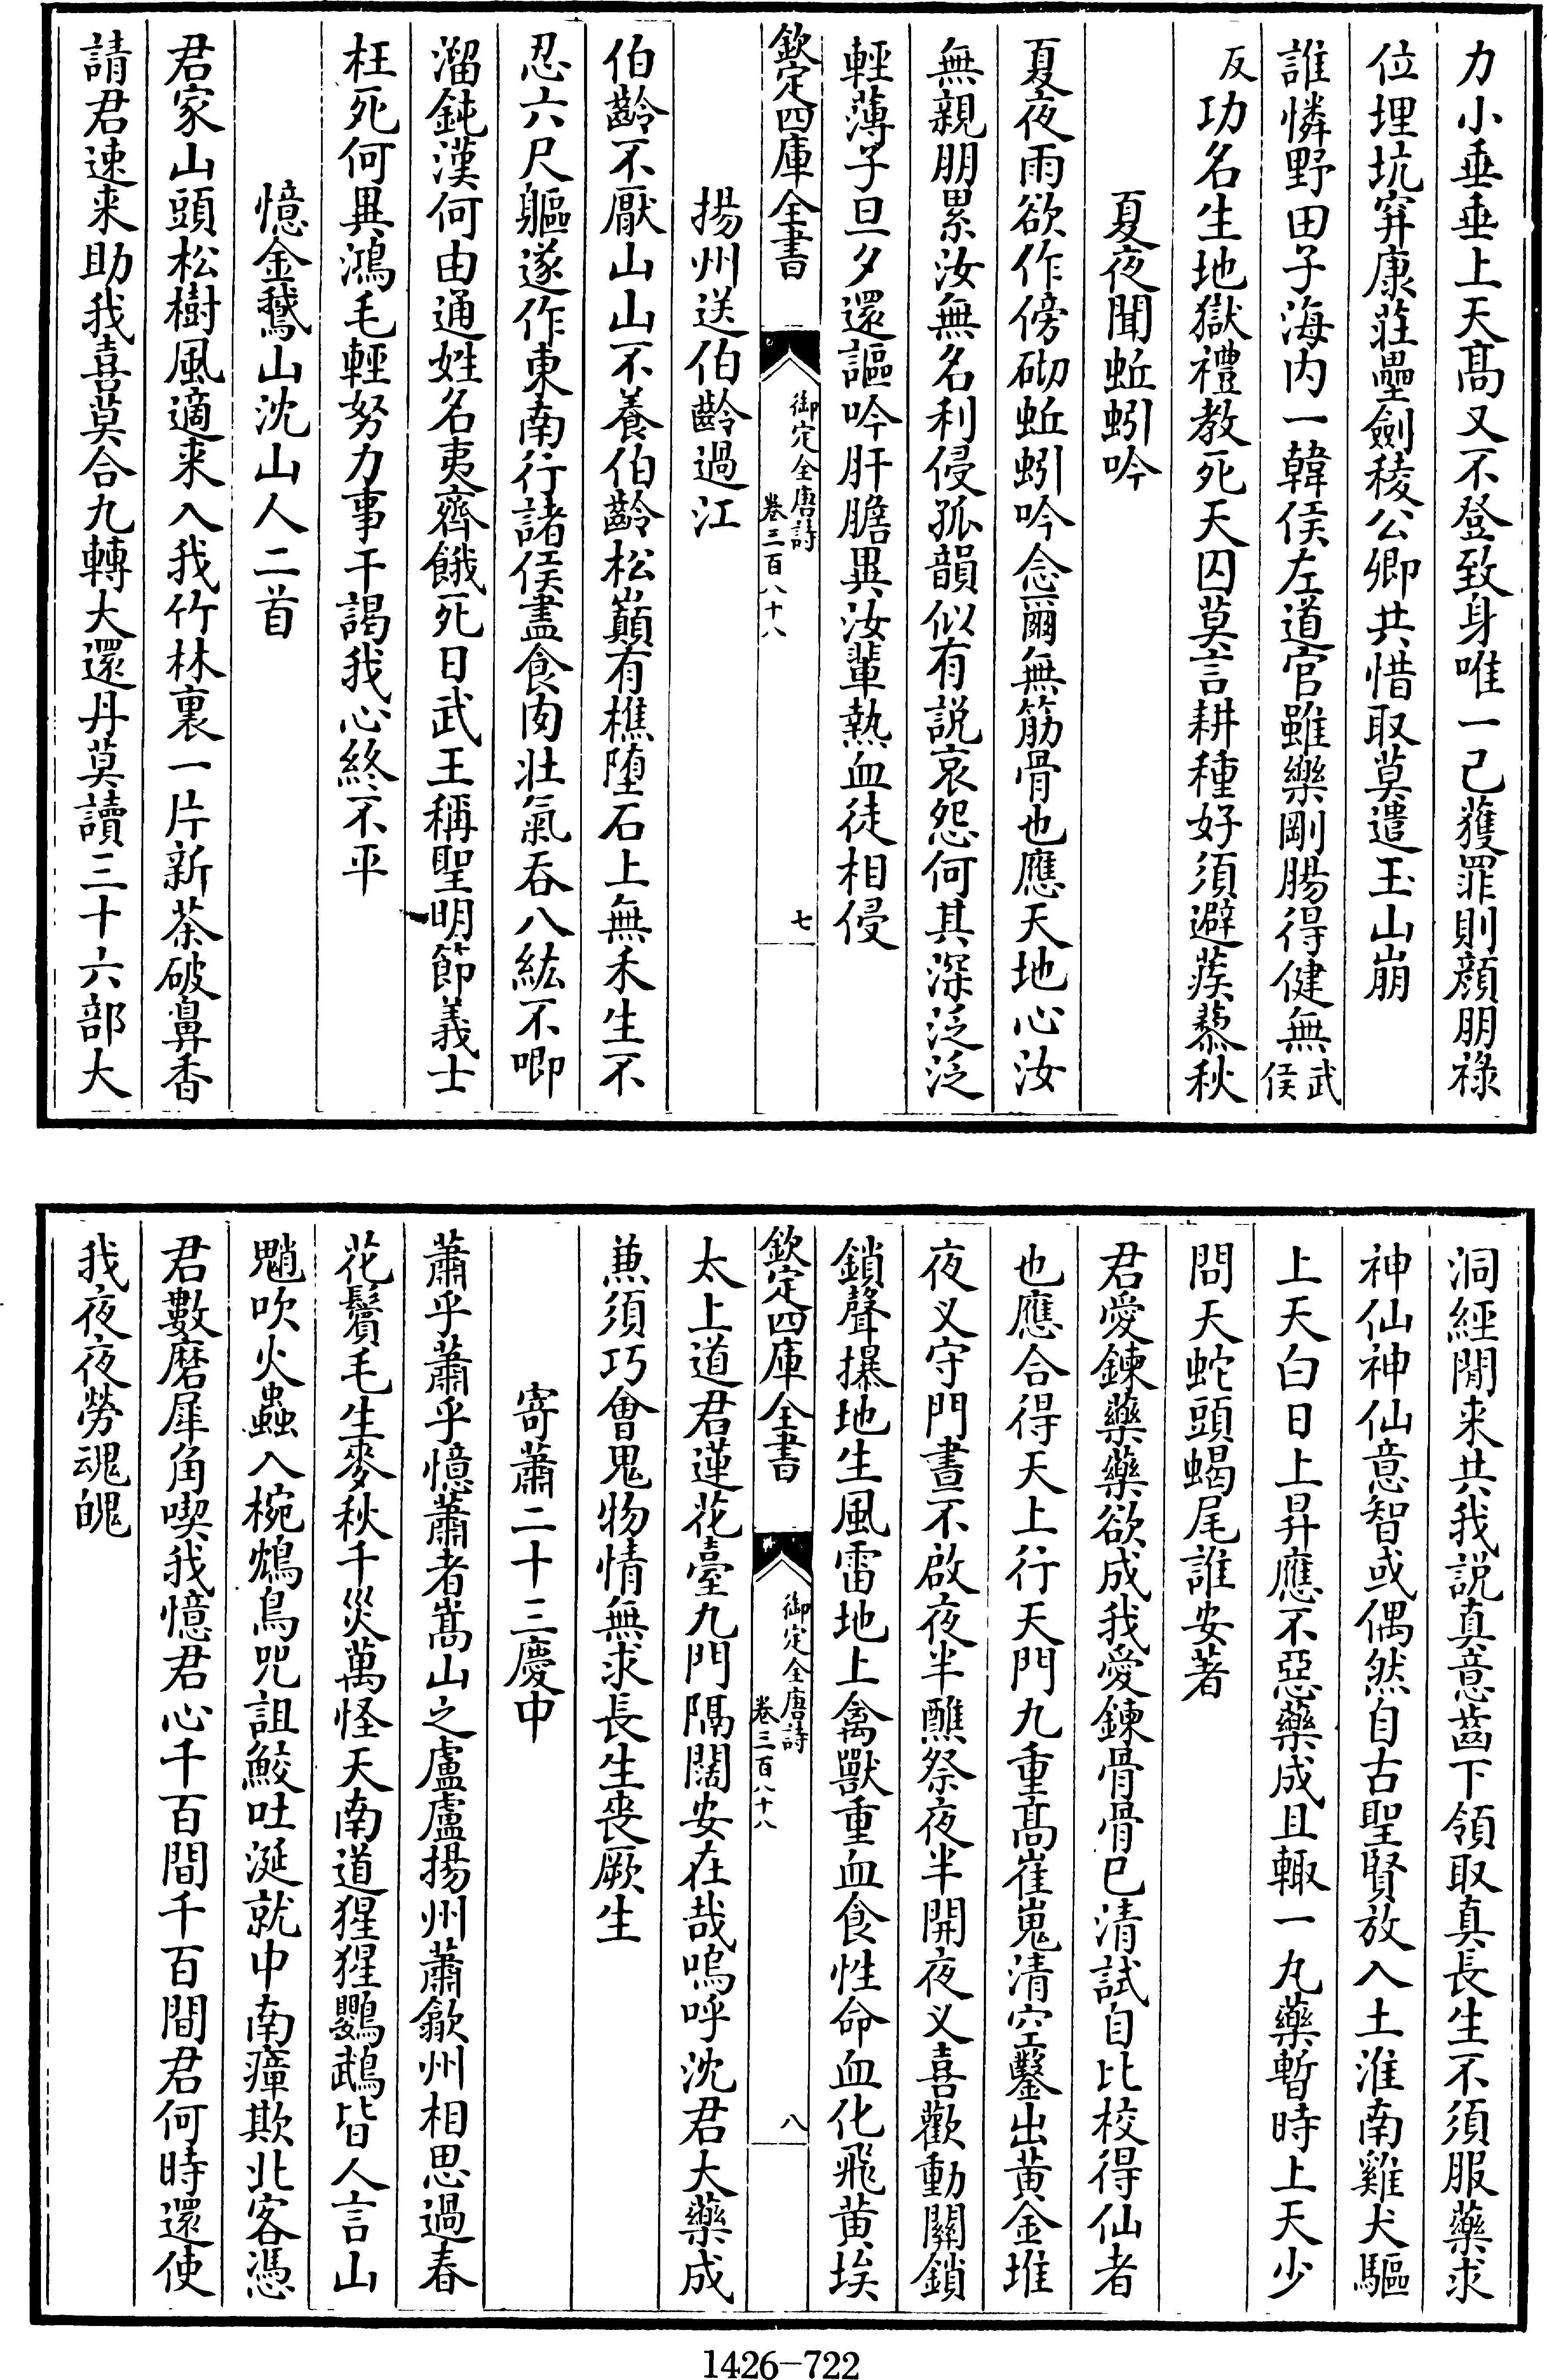 力小垂垂上天髙又不登致身唯一己獲罪則顔朋祿
位埋坑穽康莊壘劍稜公卿共惜取莫遣玉山崩
誰憐野田子海内一韓侯左道官雖樂剛腸得健無武侯
反功名生地獄禮教死天囚莫言耕種好須避蒺藜秋
夏夜聞蚯蚓吟
夏夜雨欲作傍砌蚯蚓吟念爾無筋骨也應天地心汝
無親朋累汝無名利侵孤韻似有説哀怨何其深泛泛
輕薄子旦夕還謳吟肝膽異汝輩熱血徒相侵
欽定四庫全書
御定全唐詩
卷三百八十八
七
揚州送伯齡過江
伯齡不厭山山不養伯齡松巔有樵墮石上無禾生不
忍六尺軀遂作東南行諸侯盡食肉壯氣吞八紘不唧
溜鈍漢何由通姓名夷齊餓死日武王稱聖明節義士
枉死何異鴻毛輕努力事干謁我心終不平
憶金鵞山沈山人二首
君家山頭松樹風適来入我竹林裏一片新茶破鼻香
請君速来助我喜莫合九轉大還丹莫讀三十六部大
洞經閒来共我説真意齒下領取真長生不須服藥求
神仙神仙意智或偶然自古聖賢放入土淮南雞犬驅
上天白日上昇應不惡藥成且輙一丸藥暫時上天少
問天蛇頭蝎尾誰安著
君愛鍊藥藥欲成我愛鍊骨骨已清試自比校得仙者
也應合得天上行天門九重髙崔嵬清空鑿出黄金堆
夜义守門晝不啟夜半醮祭夜半開夜义喜歡動關鎖
鎖聲㩧地生風雷地上禽獸重血食性命血化飛黄埃
欽定四庫全書
御定全唐詩
卷三百八十八
八
太上道君蓮花臺九門隔闊安在哉嗚呼沈君大藥成
兼須巧會鬼物情無求長生喪厥生
寄蕭二十三慶中
蕭乎蕭乎憶蕭者嵩山之盧盧揚州蕭歙州相思過春
花鬢毛生麥秋千災萬怪天南道猩猩鸚鵡皆人言山
魈吹火蟲入椀鴆鳥咒詛鮫吐涎就中南瘴欺北客憑
君數磨犀角喫我憶君心千百間千百間君何時還使
我夜夜勞魂魄
1426-722